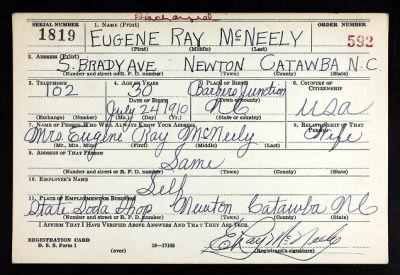 Discharged
SERIAL NUMBER 1. NAME (Print) ORDER NUMBER
1819 EUGENE RAY McNEELY 592
(First) (Middle) (Last)
2. ADDRESS (Print)
S. BRADY AVE NEWTON CATAWBA N.C
(Number and street or R. F. D. number) (Town) (County) (State)
3. TELEPHONE 4. AGE IN YEARS 5. PLACE OF BIRTH 6. COUNTRY OF CITIZENSHIP
102 30 Barbers Junction
DATE OF BIRTH (Town or county)
July 24 1910 NC USA
(Exchange) (Number) (Mo.) (Day) (Yr.) (State or country)
7. NAME OF PERSON WHO WILL ALWAYS KNOW YOUR ADDRESS 8. RELATIONSHIP OF THAT PERSON
Mrs. Eugene Ray McNeely Wife
(Mr., Mrs., Miss) (First) (Middle) (Last)
9. ADDRESS OF THAT PERSON
Same
(Number and street or R. F. D. number) (Town) (County) (State)
10. EMPLOYER'S NAME
Self
11. PLACE OF EMPLOYMENT OR BUSINESS
State Soda Shop Newton Catawba NC
(Number and street or R. F. D. number) (Town) (County) (State)
I AFFIRM THAT I HAVE VERIFIED ABOVE ANSWERS AND THAT THEY ARE TRUE.
REGISTRATION CARD
D. S. S. Form 1 (over) 16-17105 E Ray McNeely
(Registrant's signature)